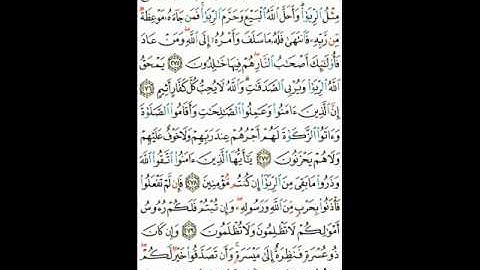 مِثْلُ ٱلرِّبَوٰا۟ وَأَحَلَّ ٱللَّهُ ٱلْبَيْعَ وَحَرَّمَ ٱلرِّبَوٰا۟ فَمَن جَآءَهُۥ مَوْعِظَةٌ
مِّن رَّبِّهِۦ فَٱنتَهَىٰ فَلَهُۥ مَا سَلَفَ وَأَمْرُهُۥٓ إِلَى ٱللَّهِ وَمَنْ عَادَ
فَأُو۟لَٰٓئِكَ أَصْحَٰبُ ٱلنَّارِ هُمْ فِيهَا خَٰلِدُونَ ٢٧٥ يَمْحَقُ
ٱللَّهُ ٱلرِّبَوٰا۟ وَيُرْبِى ٱلصَّدَقَٰتِ وَٱللَّهُ لَا يُحِبُّ كُلَّ كَفَّارٍ أَثِيمٍ ٢٧٦
إِنَّ ٱلَّذِينَ ءَامَنُوا۟ وَعَمِلُوا۟ ٱلصَّٰلِحَٰتِ وَأَقَامُوا۟ ٱلصَّلَوٰةَ
وَءَاتَوُا۟ ٱلزَّكَوٰةَ لَهُمْ أَجْرُهُمْ عِندَ رَبِّهِمْ وَلَا خَوْفٌ عَلَيْهِمْ
وَلَا هُمْ يَحْزَنُونَ ٢٧٧ يَٰٓأَيُّهَا ٱلَّذِينَ ءَامَنُوا۟ ٱتَّقُوا۟ ٱللَّهَ
وَذَرُوا۟ مَا بَقِىَ مِنَ ٱلرِّبَوٰٓا۟ إِن كُنتُم مُّؤْمِنِينَ ٢٧٨ فَإِن لَّمْ تَفْعَلُوا۟
فَأْذَنُوا۟ بِحَرْبٍ مِّنَ ٱللَّهِ وَرَسُولِهِۦ وَإِن تُبْتُمْ فَلَكُمْ رُءُوسُ
أَمْوَٰلِكُمْ لَا تَظْلِمُونَ وَلَا تُظْلَمُونَ ٢٧٩ وَإِن كَانَ
ذُو عُسْرَةٍ فَنَظِرَةٌ إِلَىٰ مَيْسَرَةٍ وَأَن تَصَدَّقُوا۟ خَيْرٌ لَّكُمْ